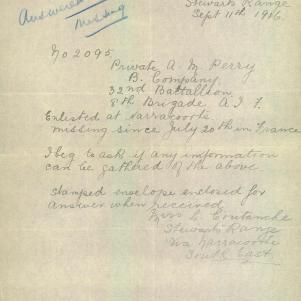 Answered
missing
Stewarts Range
Sept 11th 1916
No 2095
Private A. M. Perry
B. Company
32nd Battallion
8th Brigade A. I. F.
Enlisted at Narracoorte
missing since July 20th in France
I beg to ask if any information
can be gathered of the above
stamped envelope enclosed for
answer when received
Miss C Coutanche
Stewarts Range
via Narracoorte
South East